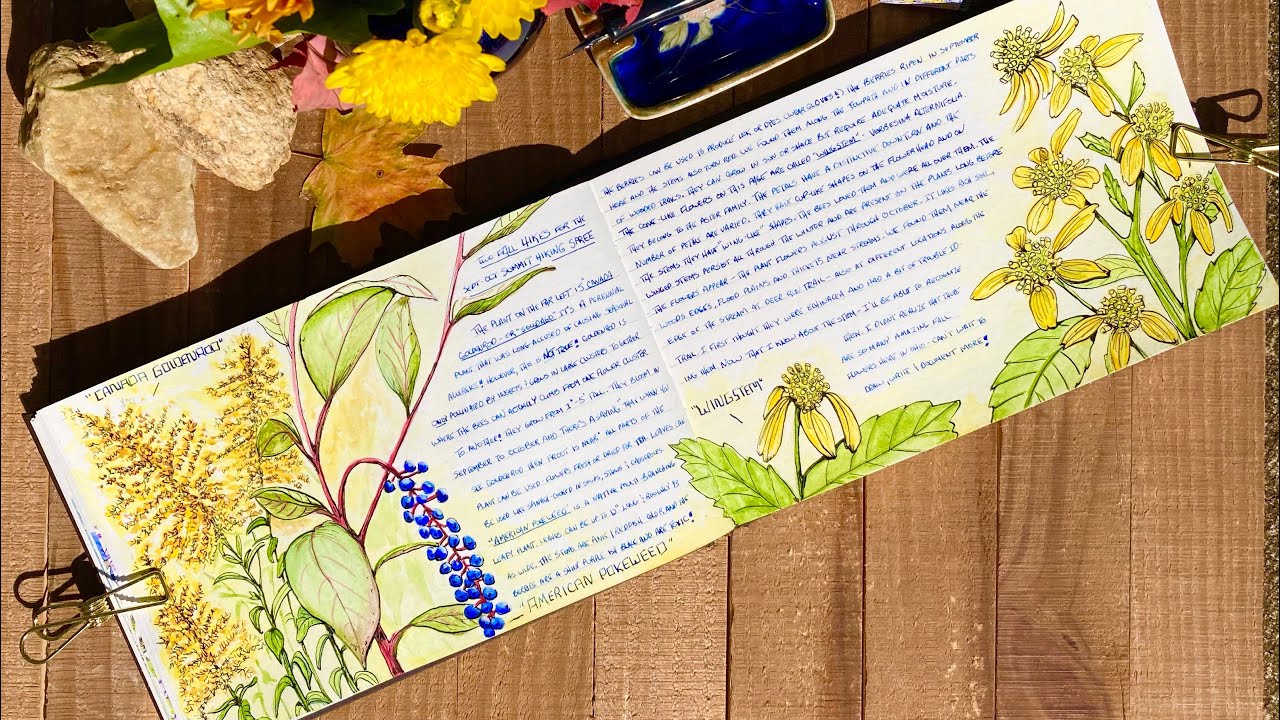 "CANADA GOLDENROD"
TWO FALL HIKES FOR THE
SEPT OCT SUMMIT HIKING SPREE
THE PLANT ON THE FAR LEFT IS CANADA
GOLDENROD - OR "SOLIDAGO". IT'S A PERENNIAL
PLANT THAT WAS LONG ACCUSED OF CAUSING SEASONAL
ALLERGIES! HOWEVER THIS IS NOT TRUE! GOLDENROD IS
ONLY POLLINATED BY INSECTS & GROWS IN LARGE CLUSTERS TOGETHER
WHERE THE BEES CAN ACTUALLY CLIMB FROM ONE FLOWER CLUSTER
TO ANOTHER! THEY GROW FROM 1'-5' TALL - THEY BLOOM IN
SEPTEMBER TO OCTOBER AND THERE'S A SAYING THAT WHEN YOU
SEE GOLDENROD THEN FROST IS NEAR! ALL PARTS OF THE
PLANT CAN BE USED. FLOWERS FRESH OR DRIED FOR TEA. LEAVES CAN
BE USED LIKE SPINACH - COOKED IN SOUPS, STEWS & CASSEROLES
"AMERICAN POKEWEED" IS A NATIVE MULTI BRANCHING
LEAFY PLANT. LEAVES CAN BE UP TO 10" LONG & ROUGHLY ½
AS WIDE. THE STEMS ARE PINK / REDDISH COLOR AND THE
BERRIES ARE A SHINY PURPLE TO BLACK AND ARE TOXIC!
"AMERICAN POKEWEED"
THE BERRIES CAN BE USED TO PRODUCE INK OR DYES (WEAR GLOVES!) THE BERRIES RIPEN IN SEPTEMBER
HERE AND THE STEMS ALSO TURN RED. WE FOUND THEM ALONG THE TOWPATH AND IN DIFFERENT PARTS
OF WOODED TRAILS. THEY CAN GROW IN SUN OR SHADE BUT REQUIRE ADEQUATE MOISTURE.
THE CONE LIKE FLOWERS ON THIS PAGE ARE CALLED "WINGSTEM" - VERBESINA ALTERNIFOLIA.
THEY BELONG TO THE ASTER FAMILY. THE PETALS HAVE A DISTINCTIVE DOWNTURN AND THE
NUMBER OF PETALS ARE VARIED. THEY HAVE CUP-LIKE SHAPES ON THIS FLOWERHEAD AND ON
THE STEMS THEY HAVE "WING LIKE" SHAPES. THE BEES LOVED THEM AND WERE ALL OVER THEM. THE
WINGED STEMS PERSIST ALL THROUGH THE WINTER AND ARE PRESENT ON THE PLANTS LONG BEFORE
THE FLOWERS APPEAR - THE PLANT FLOWERS AUGUST THROUGH OCTOBER. IT LIKES RICH SOIL,
WOODS EDGES, FLOOD PLAINS AND THICKETS NEAR STREAMS. WE FOUND THEM NEAR THE
EDGE OF THE STREAM AT DEER RUN TRAIL - ALSO AT DIFFERENT LOCATIONS ALONG THE
TRAIL. I FIRST THOUGHT THEY WERE ECHINACEA AND HAD A BIT OF TROUBLE ID-
ING THEM. NOW THAT I KNOW ABOUT THE STEM - I'LL BE ABLE TO RECOGNIZE
THEM. I DIDN'T REALIZE THAT THERE
ARE SO MANY AMAZING FALL
FLOWERS HERE IN OHIO - CAN'T WAIT TO
DRAW, WRITE & DOCUMENT MORE!
"WINGSTEM"